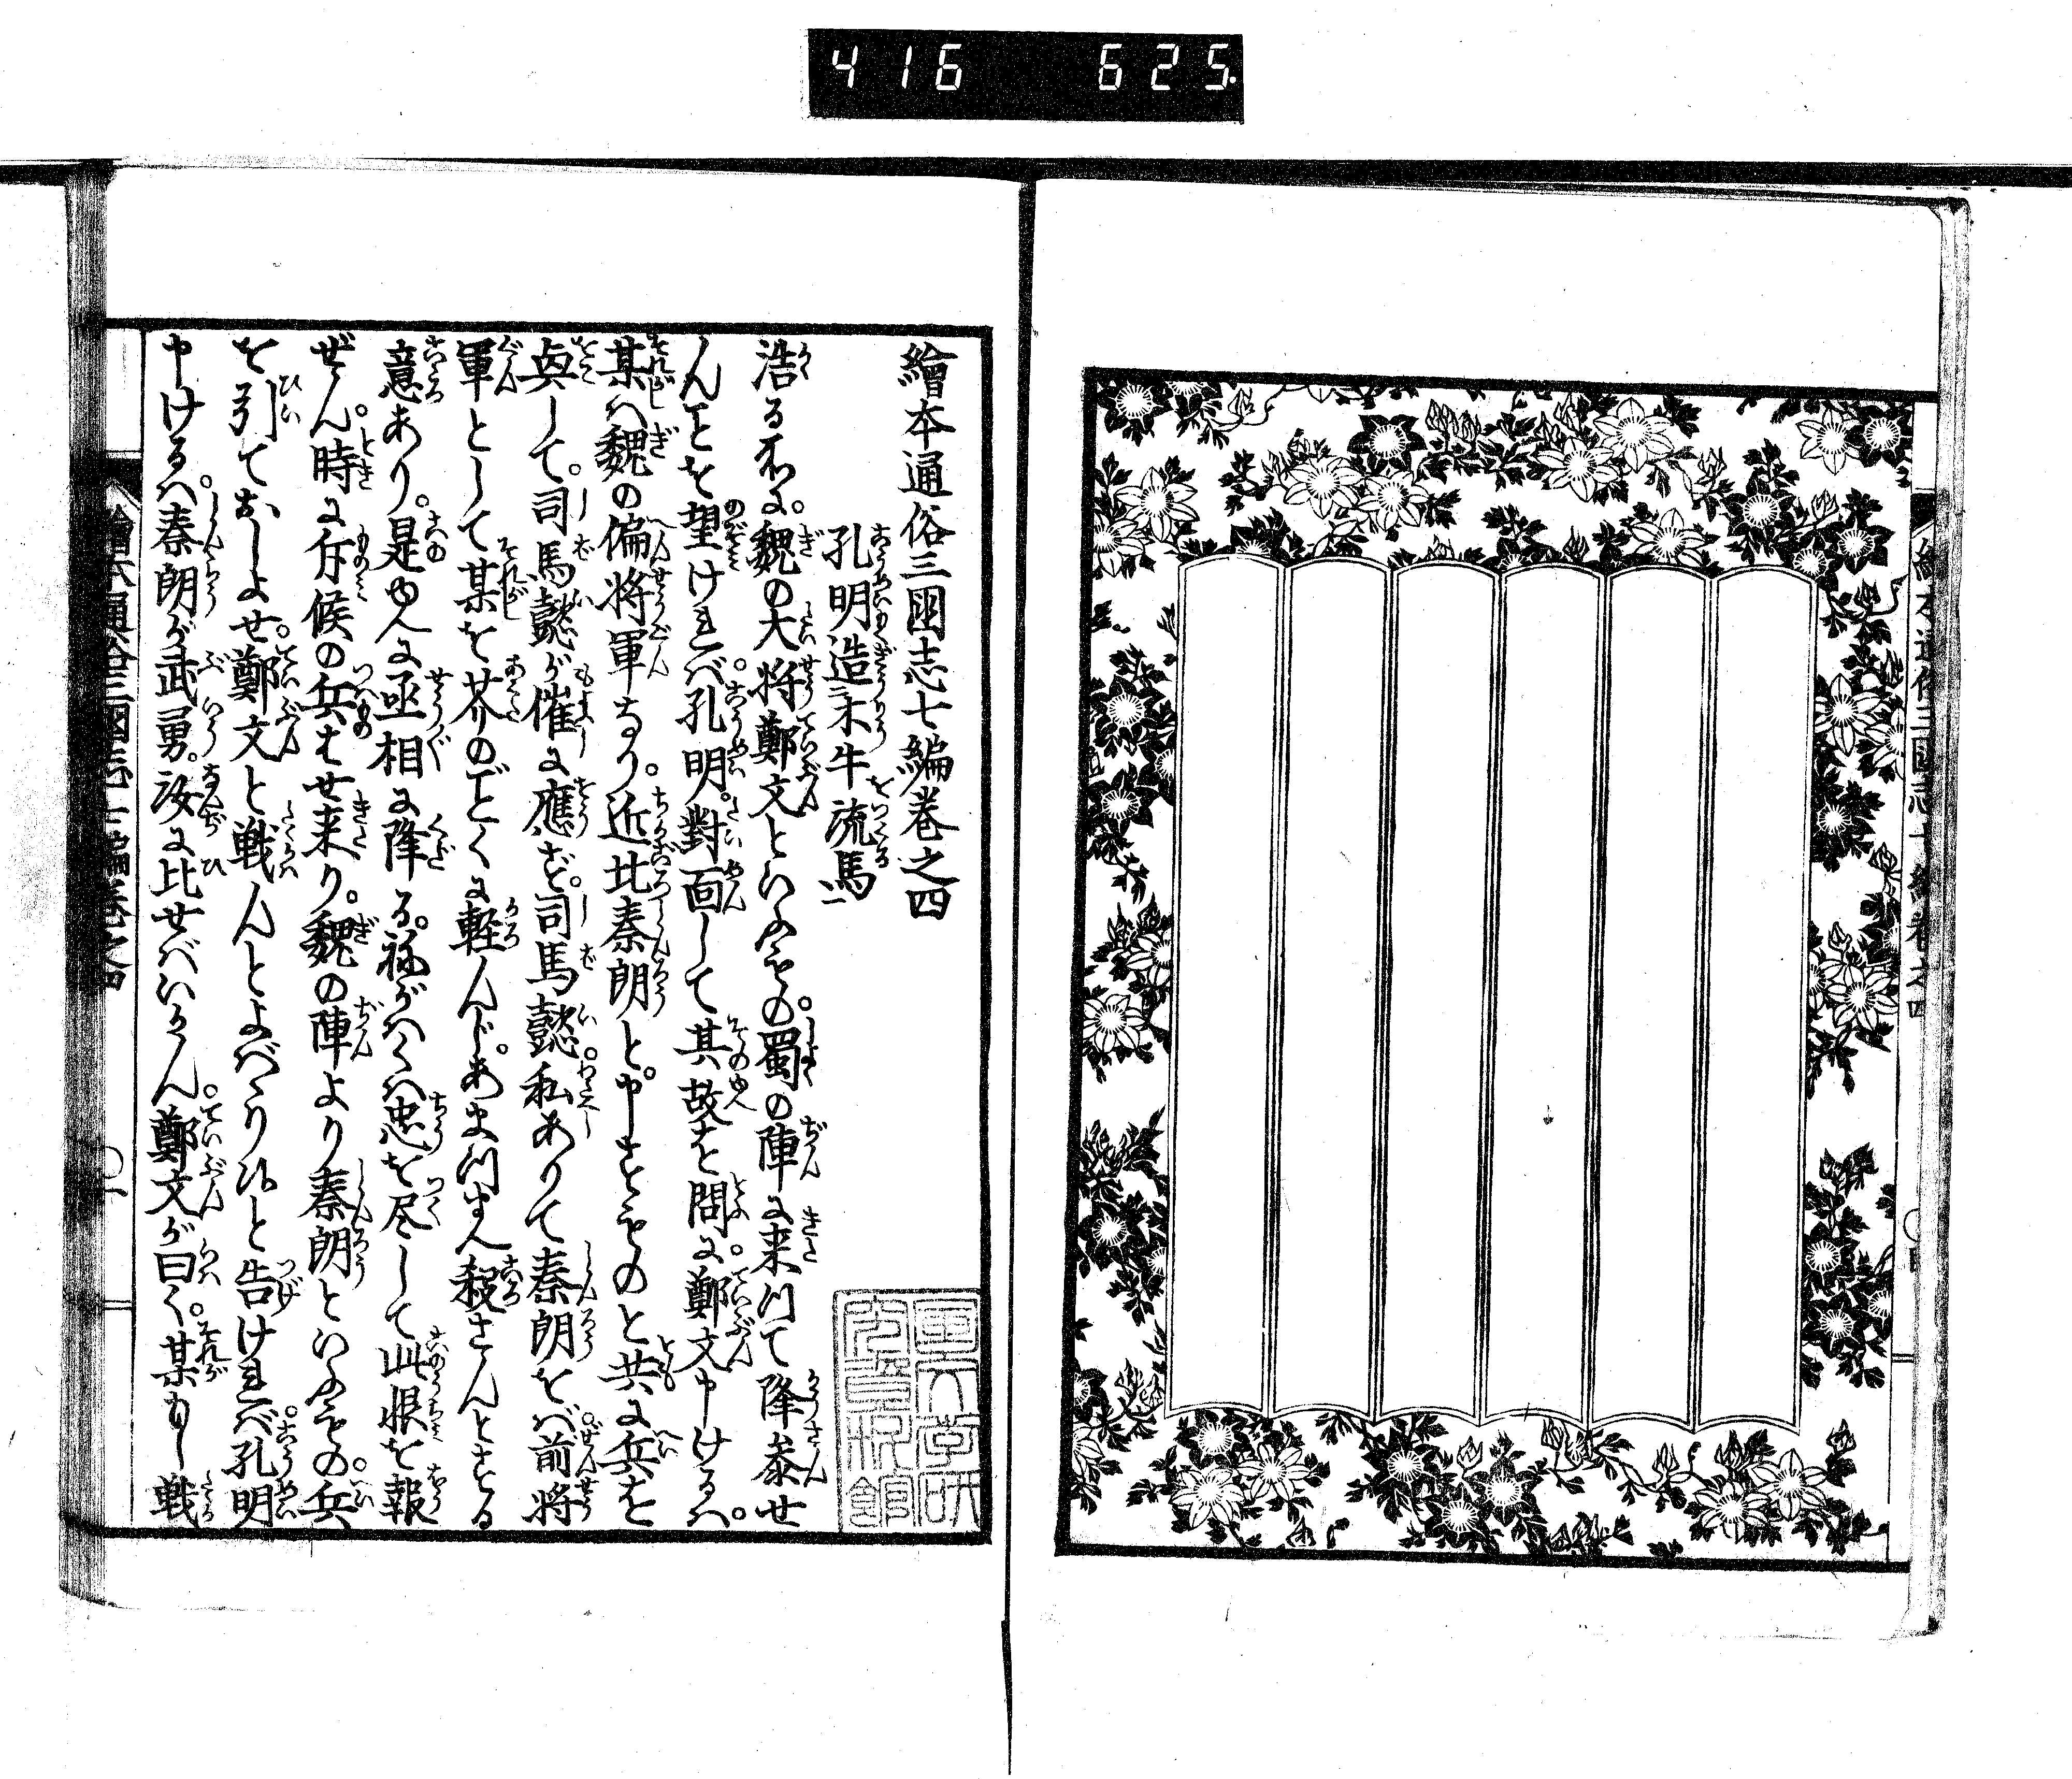 416 625
繪本通俗三國志七編巻之四
孔明造木牛流馬
浩る所に。魏の大将鄭文といふもの。蜀の陣に来つて降参せ
んことを望ければ。孔明。對面して其故を問に。鄭文申けるハ。
某ハ魏の偏将軍なり。近比秦朗と。申すものと共に兵を
与して。司馬懿が催に應ず。司馬懿。私ありて秦朗をバ前将
軍として某を芥のごとくに軽んじ。あまつさへ殺さんとする
意あり。是ゆへに丞相に降る。ねがハくハ忠を尽して此恨を報
ぜん。時に斥候の兵はせ来り。魏の陣より秦朗といふもの。兵
を引ておしよせ。鄭文と戦んとよバゝり候と告ければ。孔明
申けるハ。秦朗が武勇。汝に比せバいかん。鄭文が曰く。某もし戦
繪本通俗三國志七編巻之四